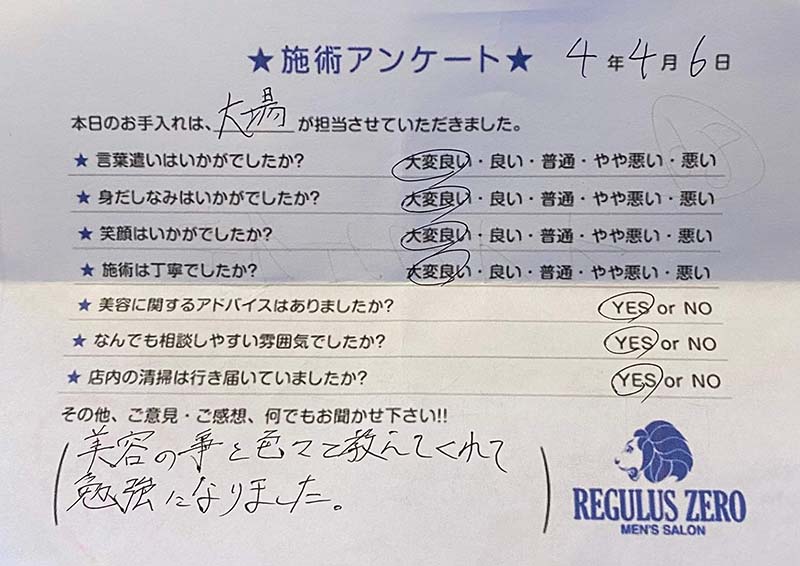 ★施術アンケート★ 4年4月6日
本日のお手入れは、大場が担当させていただきました。
★ 言葉遣いはいかがでしたか? 大変良い・良い・普通・やや悪い・悪い
★ 身だしなみはいかがでしたか? 大変良い・良い・普通・やや悪い・悪い
★ 笑顔はいかがでしたか? 大変良い・良い・普通・やや悪い・悪い
★ 施術は丁寧でしたか? 大変良い・良い・普通・やや悪い・悪い
★ 美容に関するアドバイスはありましたか? YES or NO
★ なんでも相談しやすい雰囲気でしたか? YES or NO
★ 店内の清掃は行き届いていましたか? YES or NO
その他、ご意見・ご感想、何でもお聞かせ下さい!!
美容の事と色々と教えてくれて
勉強になりました。
REGULUS ZERO
MEN'S SALON